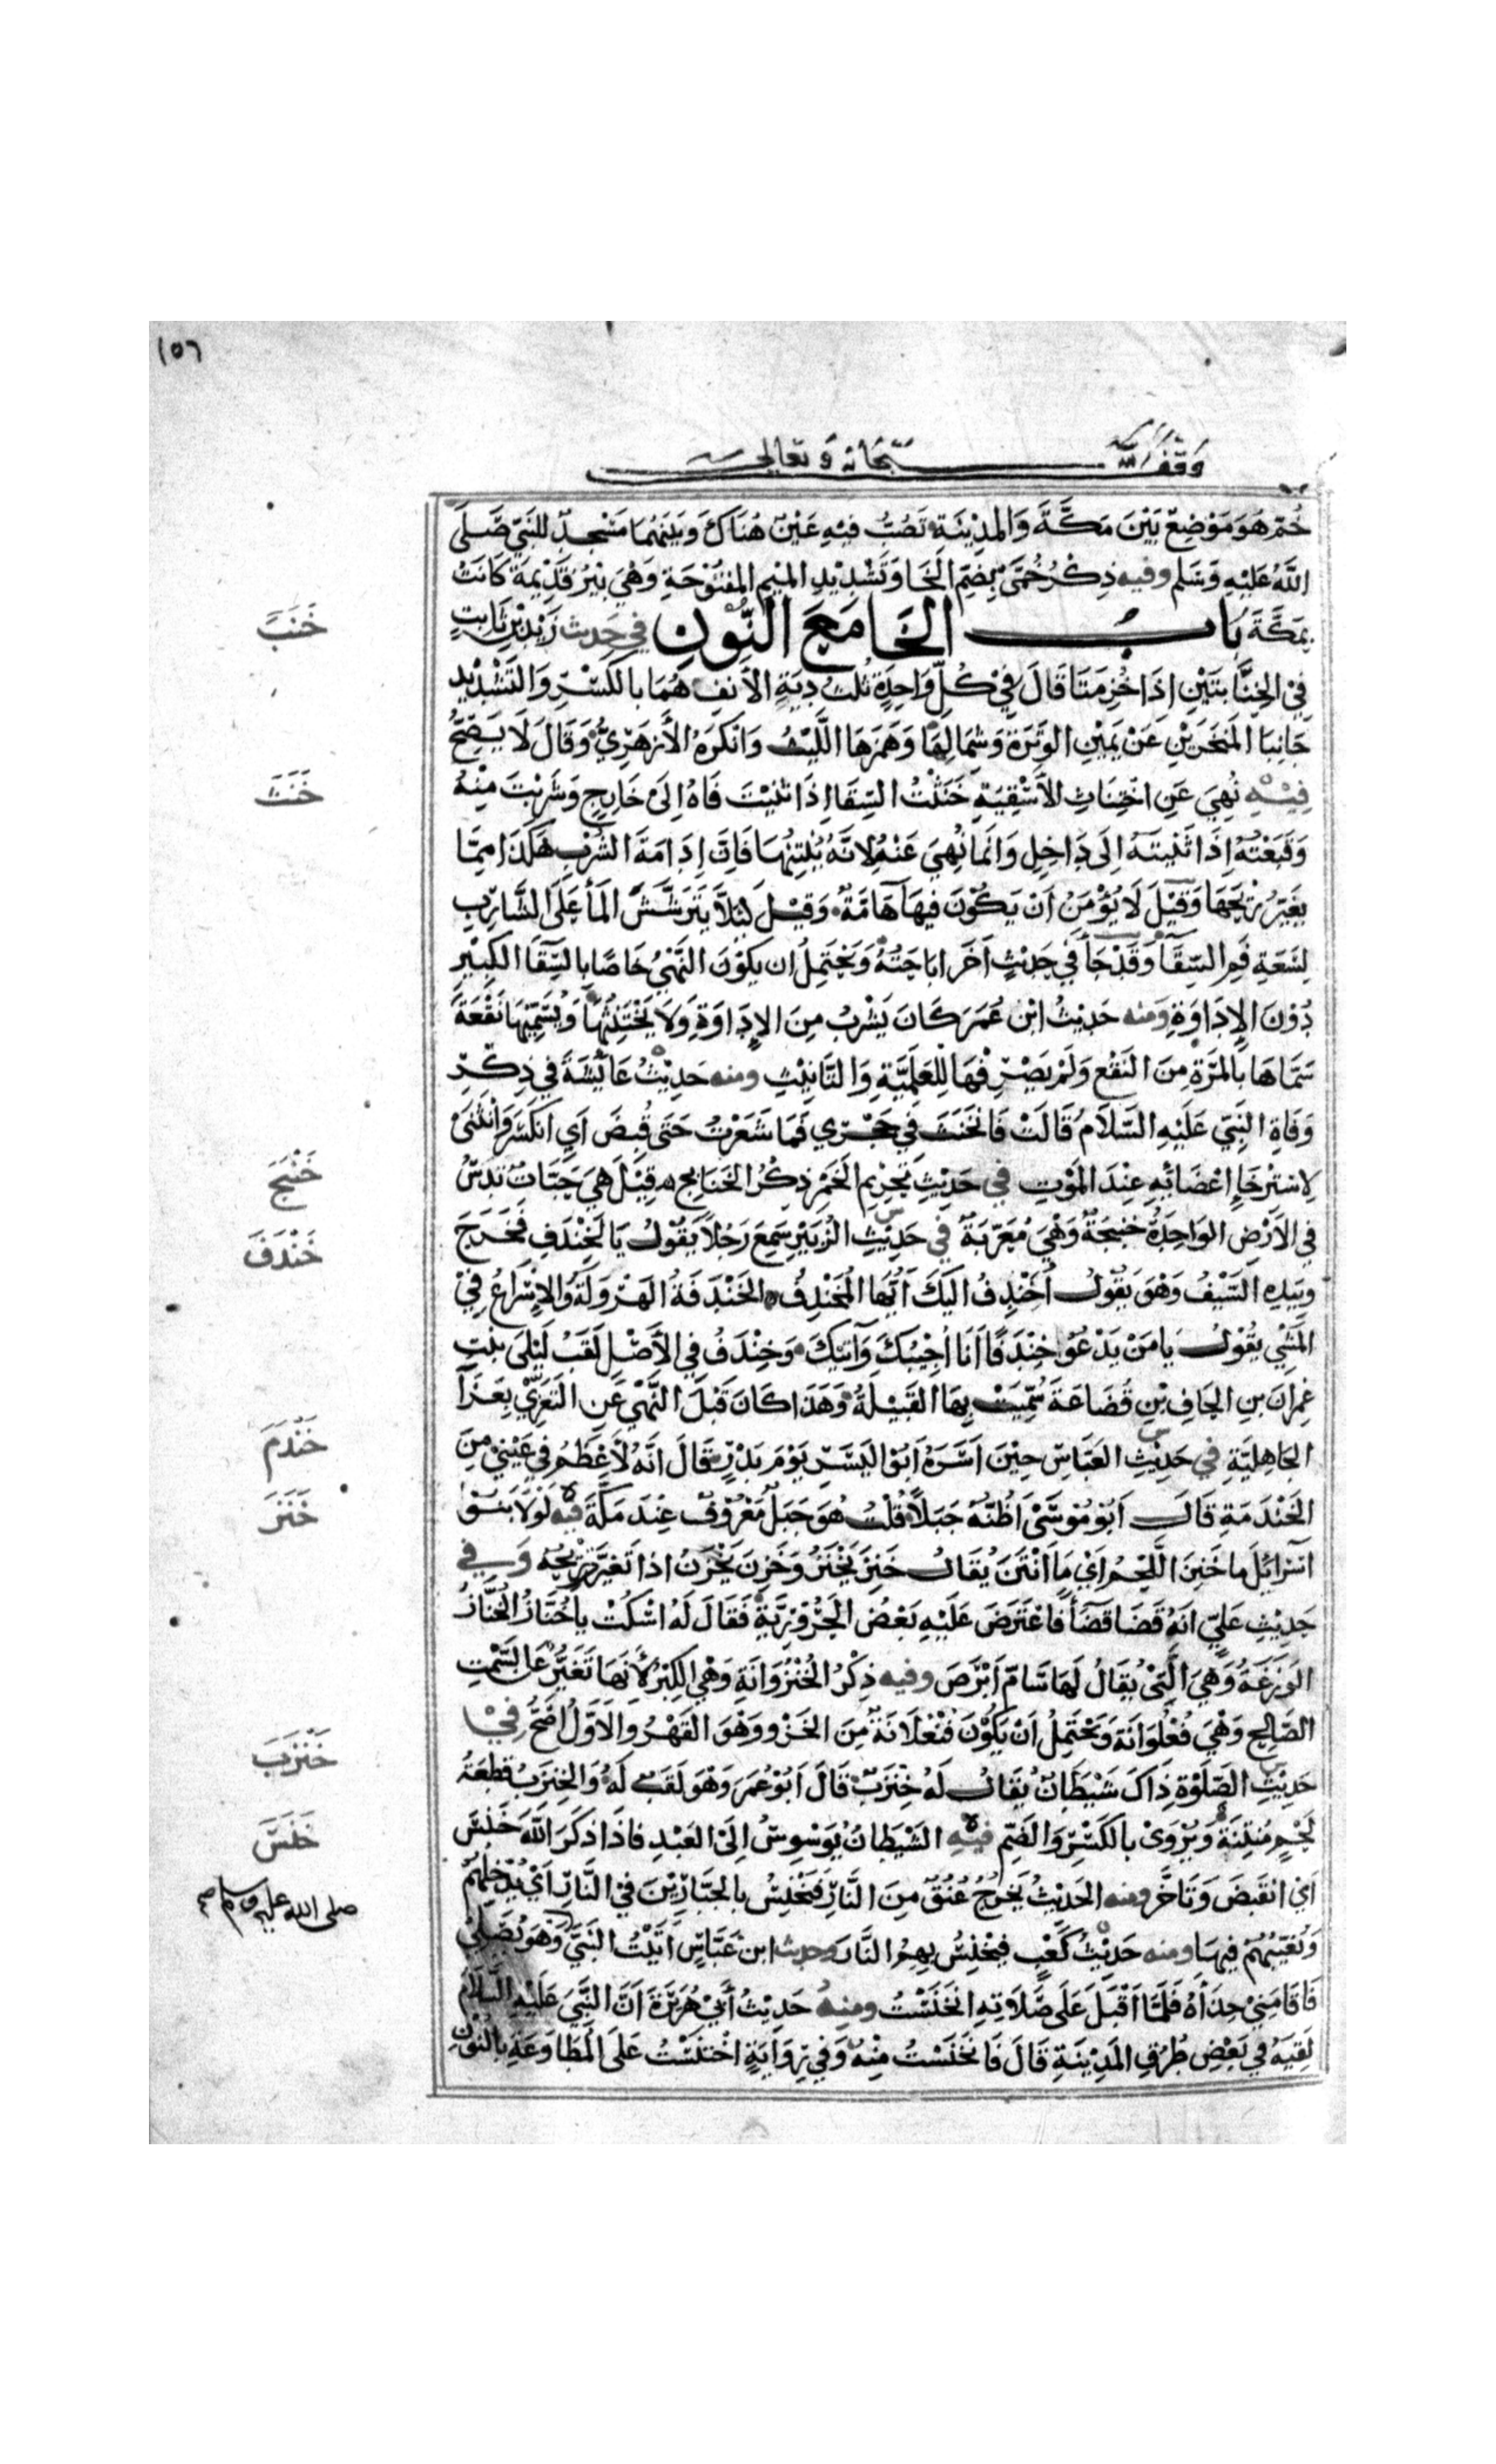 ١٥٦
وقف لله سبحانه وتعالى
خُمّ هُوَ مَوْضِعٌ بَيْنَ مَكَّةَ وَالمَدِيْنَةِ تَصُبُّ فِيْهِ عَيْنٌ هُنَاكَ وَبَيْنَهُمَا مَسْجِدٌ للنَّبِيّ صَلَّى
اللَّهُ عَلَيْهِ وَسَلم وفيه ذِكْرُ خُمَّى بِضَمِّ الخَا وَتَشْدِيْدِ المِيْمِ المفْتُوْحَةِ وَهْيَ بِيْرٌ قَدِيْمَةٌ كَانَتْ
بِمَكَّةَ بَابُ الخَا مَعَ النُّوْنِ في حَدِيث زَيْدِ بْنِ ثَابِتٍ
خَنَبَ
فِيْ الخِنَّابَتَيْنِ اذَا خُرِمَتَا قَالَ فِيْ كُلِّ وَاحِدَةٍ ثُلثُ دِيَةِ الأَنفِ هُمَا بالكَسْرِ وَالتَّشْدِيْدِ
جَانِبَا المَنْخَرَيْنِ عَنْ يَمِيْنِ الوَتَرَةِ وَشِمَالِهَا وَهَمَزَهَا اللَّيْثُ وَانْكَرَهُ الأَزهَرِيُّ وَقَالَ لَا يَصِحُّ
خَنَثَ
فِيْهِ نُهِيَ عَنِ اخْتِنَاثِ الأَسْقِيَةِ خَنَثْتُ السِّقَا اذَا ثَنَيْتَ فَاهُ اِلَى خَارِجٍ وَشَرِبْتَ مِنْهُ
وَقَبَعْتُهُ اِذَا ثَنَيتَهُ اِلَى دَاخِلٍ وَانَّمَا نُهِيَ عَنْهُ لِانَّهُ يُنْتِنُهَا فَاِنَّ اِدَامَةَ الشُّرْبِ هَكَذَا مِمَّا
يغَيِّرُ رِيْحَهَا وَقِيْلَ لَا يُؤْمَنُ اَنْ يَكُوْنَ فِيهَا هَامَةٌ وَقِيْلَ لِئَلَّا يَتَرَشَّشَ المَأ عَلَى الشَّارِبِ
لِسَعَةِ فَمِ السِّقَا وَقَدْ جَأ فِي حَدِيْثٍ اَخَرَ ابَاحَتُهُ وَيَحْتَمِلُ ان يكُوْنَ النَّهْيُ خَاصًّا بِالسِّقَا الكَبِيْرِ
دُوْنَ الاِدَاوَةِ وَمنه حَدِيْثُ ابْن عُمَرَ كَانَ يَشْرَبُ مِنَ الاِدَاوَةِ وَلَا يَخْتَنِثُهَا وَيُسَمِّيْهَا نَفْعَةَ
سَمَّاهَا بِالمَرَّةِ مِنَ النَّفْعِ وَلَمْ يَصْرِفْهَا لِلعَلَمِيَّةِ وَالتَّانِيْثِ ومنه حَدِيْثُ عَائِشَةَ في ذِكْرِ
وَفَاةِ النَّبِيّ عَلَيْهِ السَّلَامُ قَالَتْ فَانْخَنَثَ فِي حَجْرِي فَمَا شَعَرْتُ حَتَى قُبِضَ اَي انكَسَرَ وَانْثَنَى
خَنْبَجَ
لِاسْتِرْخَاِ اعْضَائِهِ عِنْدَ المَوْتِ في حَدِيْثِ تَحْرِيْمِ الخَمْرِ ذِكْرُ الخَنَابجِ قِيْلَ هِيَ حِبَّاتٌ تُدَسُّ
في الأَرْضِ الوَاحِدَةُ خنبجَةٌ وَهْيَ مُعَرَّبَةٌ في حَدِيْثِ الزُّبَيْرِ سَمِعَ رَجُلًا يَقُوْلُ يَا لَخِنْدَفٍ فَخَرَجَ
خَنْدَفَ
وبيَدِهِ السَّيْفُ وَهْوَ يقُوْلُ أُخَنْدِفُ الَيْكَ اَيُّهَا المُخَنْدِفُ الخَنْدَفَةُ الهَرْوَلَةُ وَالاِسْرَاعُ فِيْ
المَشْيِ يقُوْلُ يَا مَنْ يَدْعُوْ خِنْدَفًا اَنَا اُجِيْبُكَ وَآتِيْكَ وَخِنْدَفُ فِي الأَصْلِ لَقَبُ لَيْلَى بِنْتِ
عِمْرَانَ بنِ الحِافِ بْنِ قُضَاعَةَ سُمِّيَتْ بِهَا القَبِيْلَةُ وَهَذَا كَانَ قَبْلَ النَّهْيِ عَنِ التَّعَزِّيْ بِعَزَاَ
خَنْدَمَ
الجَاهِلِيَّةِ في حَدِيْثِ العَبَّاسِ حِيْنَ اَسَرَهُ اَبُوْ اليَسَرِ يَوْمَ بَدْرٍ قَالَ انَّهُ لَأَعْظَمُ فِي عَيْنِيْ مِنَ
خَنَزَ
الخَنْدَمَةِ قَالَ اَبُوْ مُوْسَى اَظُنُّهُ جَبَلًا قُلْتُ هُوَ جَبَلٌ مَعْرُوْفٌ عِنْدَ مَكَّةَ فيه لَوْلَا بَنُوْ
اسْرَائِيْلَ ما خَنِزَ اللَّحْمُ اَيْ مَا اَنْتَنَ يُقَالُ خَنِزَ يَخْنَزُ وَخَزِنَ يَخْزَنُ اذا تَغَيَّرَ رِيْحُهُ وَفي
حَدِيْثِ عَلِيّ انَّهُ قَضَا قَضَأً فَاعْتَرَضَ عَلَيْهِ بَعْضُ الحَرُوْرِيَّةِ فَقَالَ لَهُ اسْكُتْ يا خُنَّازُ الخُنَّازُ
الوَزَغَةُ وَهْيَ الَّتِيْ يُقَالُ لَهَا سَامّ اَبْرَصَ وفيه ذِكْرُ الخُنْزُوَانَةِ وَهْيَ الكِبْرُ لأَنَّهَا تُغَيِّرُ عَنِ السَّمْتِ
الصَّالِحِ وَهْيَ فُعْلُوَانَة وَيَحْتَمِلُ اَنْ يَكُوْنَ فُنْعَلَانَةً مِنَ الخَزْوِ وَهْوَ القَهْرُ وَالاَوَّلُ اَصَحُّ فِيْ
خَنْزَبَ
حَدِيْثِ الصَّلوٰةِ ذَاكَ شَيْطَانٌ يُقَالُ لَهُ خِنْزَبٌ قَالَ اَبُوْ عُمَرَ وَهْوَ لَقَبٌ لَهُ وَالخِنزَبُ قِطْعَةُ
خَنَسَ
لَحْمٍ مُنْتِنَةٌ وَيُرْوَى بالكَسْرِ وَالضَّمِّ فِيْهِ الشَّيْطَانُ يُوَسْوِسُ اِلَى العَبْدِ فاذَا ذكَرَ اللّهَ خَنَسَ
اَيْ انْقَبَضَ وَتَأَخَّرَ ومنه الحَدِيْثُ يَخْرُجُ عُنُقٌ مِنَ النَّارِ فَتَخْنِسُ بِالجَبَّارِيْنَ فِيْ النَّارِ اَيْ تُدْخِلُهُمْ
صلى الله عليه وسلم صح
وَتُغَيِّبُهُمْ فِيهَا ومنه حَدِيْثُ كَعْبٍ فتَخْنِسُ بِهِمُ النَّار وحديث ابن عَبَّاسٍ اَتَيْتُ النَّبِيَّ وَهْوَ يُصَلِّيْ
فَاقَامَنِيْ حِذَأَهُ فَلَمَّا اَقْبَلَ عَلَى صَلَاتِهِ انْخَنَسْتُ ومنه حَدِيْثُ اَبِيْ هُرَيْرَةَ اَنَّ النَّبِيَّ عَلَيْهِ السَّلَامُ
لَقِيَهُ فِي بَعْضِ طُرُقِ المَدِيْنَةِ قَالَ فَانْخَنَسْتُ مِنْهُ وَفِي رِوَايَةٍ اخْتَنَسْتُ عَلَى المُطَاوَعَةِ بالنُّوْنِ